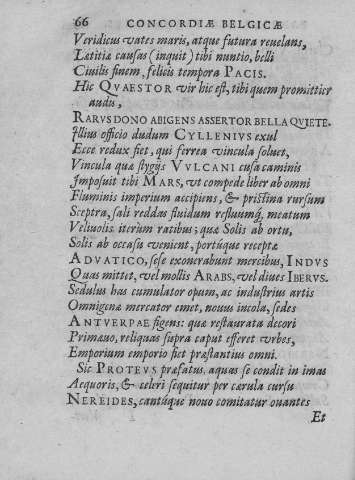 66 CONCORDIÆ BELGICÆ
Veridicus vates maris, atque futura reuelans,
Lætitiæ causas (inquit) tibi nuntio, belli
Ciuilis finem, felicis tempora PACIS.
Hic QVAESTOR vir hic est, tibi quem promittier
audis,
RARVS DONO ABIGENS ASSERTOR BELLA QVIETE.
Illius officio dudum CYLLENIVS exul
Ecce redux fiet, qui ferrea vincula soluet,
Vincula quæ stygijs VVLCANI cusa caminis
Imposuit tibi MARS, vt compede liber ab omni
Fluminis imperium accipiens, & pristina rursum
Sceptra, sali reddas fluidum refluumq́; meatum
Veliuolis iterum ratibus; quæ Solis ab ortu,
Solis ab occasu venient, portúque receptæ
ADVATICO, sese exonerabunt mercibus, INDVS
Quas mittet, vel mollis ARABS, vel diues IBERVS.
Sedulus has cumulator opum, ac industrius artis
Omnigenæ mercator emet, nouus incola, sedes
ANTVERPAE figens: quæ restaurata decori
Primæuo, reliquas supra caput efferet vrbes,
Emporium emporio fiet præstantius omni.
Sic PROTEVS præfatus, aquas se condit in imas
Aequoris, & celeri sequitur per cærula cursu
NEREIDES, cantúque nouo comitatur ouantes
Et